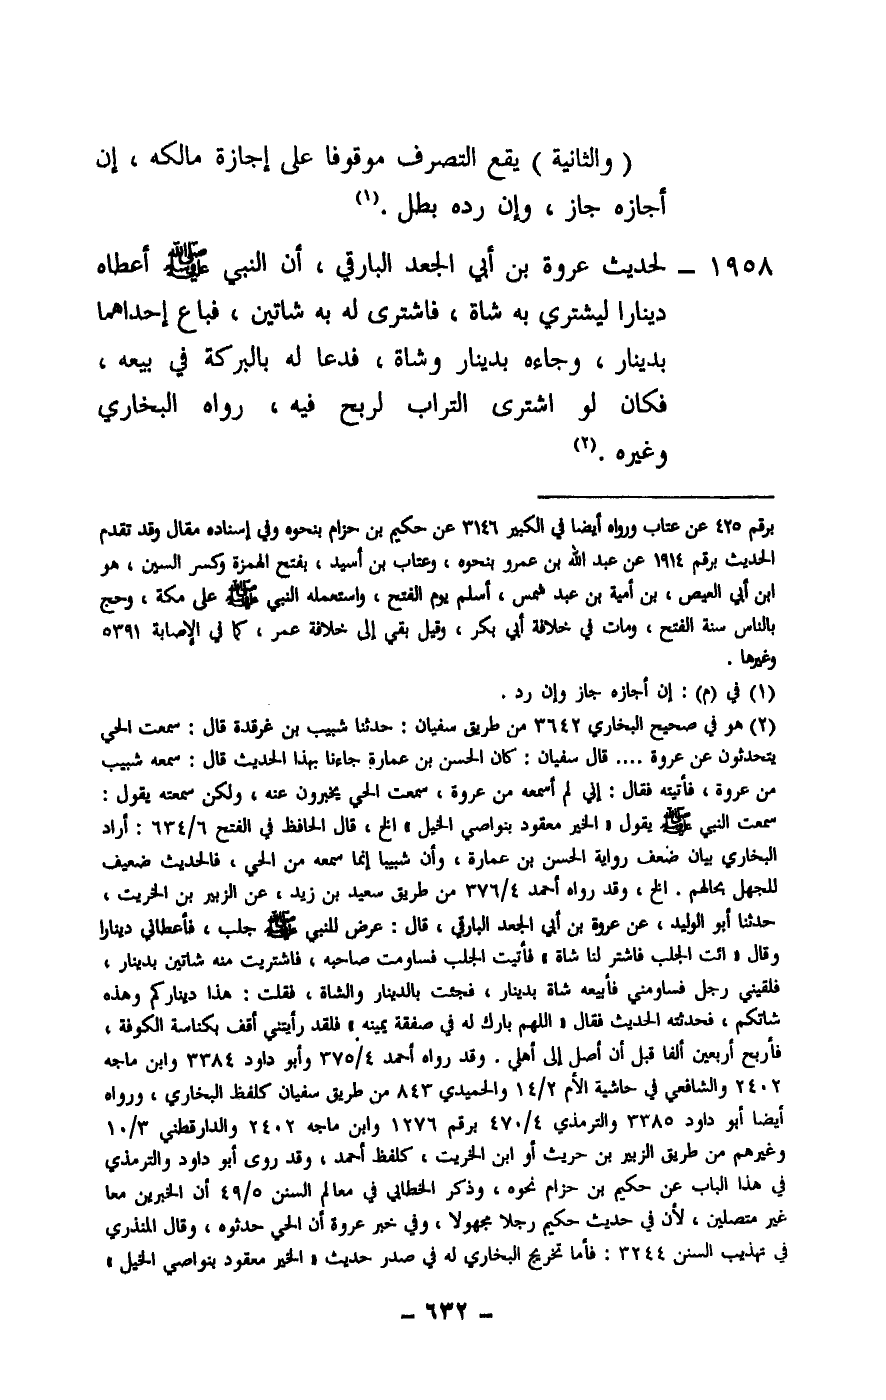 ( والثانية ) يقع التصرف موقوفا على إجازة مالكه ، إن
أجازه جاز ، وإن رده بطل .(١)
١٩٥٨ – لحديث عروة بن أبي الجعد البارقي ، أن النبي ﷺ أعطاه
دينارا ليشتري به شاة ، فاشترى له به شاتين ، فباع إحداهما
بدينار ، وجاءه بدينار وشاة ، فدعا له بالبركة في بيعه ،
فكان لو اشترى التراب لربح فيه ، رواه البخاري
وغيره .(٢)
برقم ٤٢٥ عن عتاب ورواه أيضا في الكبير ٣١٤٦ عن حكيم بن حزام بنحوه وفي إسناده مقال وقد تقدم
الحديث برقم ١٩١٤ عن عبد الله بن عمرو بنحوه ، وعتاب بن أسيد ، بفتح الهمزة وكسر السين ، هو
ابن أبي العيص ، بن أمية بن عبد شمس ، أسلم يوم الفتح ، واستعمله النبي ﷺ على مكة ، وحج
بالناس سنة الفتح ، ومات في خلافة أبي بكر ، وقيل بقي إلى خلافة عمر ، كما في الإصابة ٥٣٩١
وغيرها .
(١) في (م) : إن أجازه جاز وإن رد .
(٢) هو في صحيح البخاري ٣٦٤٢ من طريق سفيان : حدثنا شبيب بن غرقدة قال : سمعت الحي
يتحدثون عن عروة .... قال سفيان : كان الحسن بن عمارة جاءنا بهذا الحديث قال : سمعه شبيب
من عروة ، فأتيته فقال : إني لم أسمعه من عروة ، سمعت الحي يخبرون عنه ، ولكن سمعته يقول :
سمعت النبي ﷺ يقول « الخير معقود بنواصي الخيل » الخ ، قال الحافظ في الفتح ٦٣٤/٦ : أراد
البخاري بيان ضعف رواية الحسن بن عمارة ، وأن شبيبا إنما سمعه من الحي ، فالحديث ضعيف
للجهل بحالهم . الخ ، وقد رواه أحمد ٣٧٦/٤ من طريق سعيد بن زيد ، عن الزبير بن الخريت ،
حدثنا أبو الوليد ، عن عروة بن أبي الجعد البارقي ، قال : عرض للنبي ﷺ جلب ، فأعطاني دينارا
وقال « ائت الجلب فاشتر لنا شاة » فأتيت الجلب فساومت صاحبه ، فاشتريت منه شاتين بدينار ،
فلقيني رجل فساومني فأبيعه شاة بدينار ، فجئت بالدينار والشاة ، فقلت : هذا ديناركم وهذه
شاتكم ، فحدثته الحديث فقال « اللهم بارك له في صفقة يمينه » فلقد رأيتني أقف بكناسة الكوفة ،
فأربح أربعين ألفا قبل أن أصل إلى أهلي . وقد رواه أحمد ٣٧٥/٤ وأبو داود ٣٣٨٤ وابن ماجه
٢٤٠٢ والشافعي في حاشية الأم ١٤/٢ والحميدي ٨٤٣ من طريق سفيان كلفظ البخاري ، ورواه
أيضا أبو داود ٣٣٨٥ والترمذي ٤٧٠/٤ برقم ١٢٧٦ وابن ماجه ٢٤٠٢ والدارقطني ١٠/٣
وغيرهم من طريق الزبير بن حريث أو ابن الخريت ، كلفظ أحمد ، وقد روى أبو داود والترمذي
في هذا الباب عن حكيم بن حزام نحوه ، وذكر الخطابي في معالم السنن ٤٩/٥ أن الخبرين معا
غير متصلين ، لأن في حديث حكيم رجلا مجهولا ، وفي خبر عروة أن الحي حدثوه ، وقال المنذري
في تهذيب السنن ٣٢٤٤ : فأما تخريج البخاري له في صدر حديث « الخير معقود بنواصي الخيل »
– ٦٣٢ –